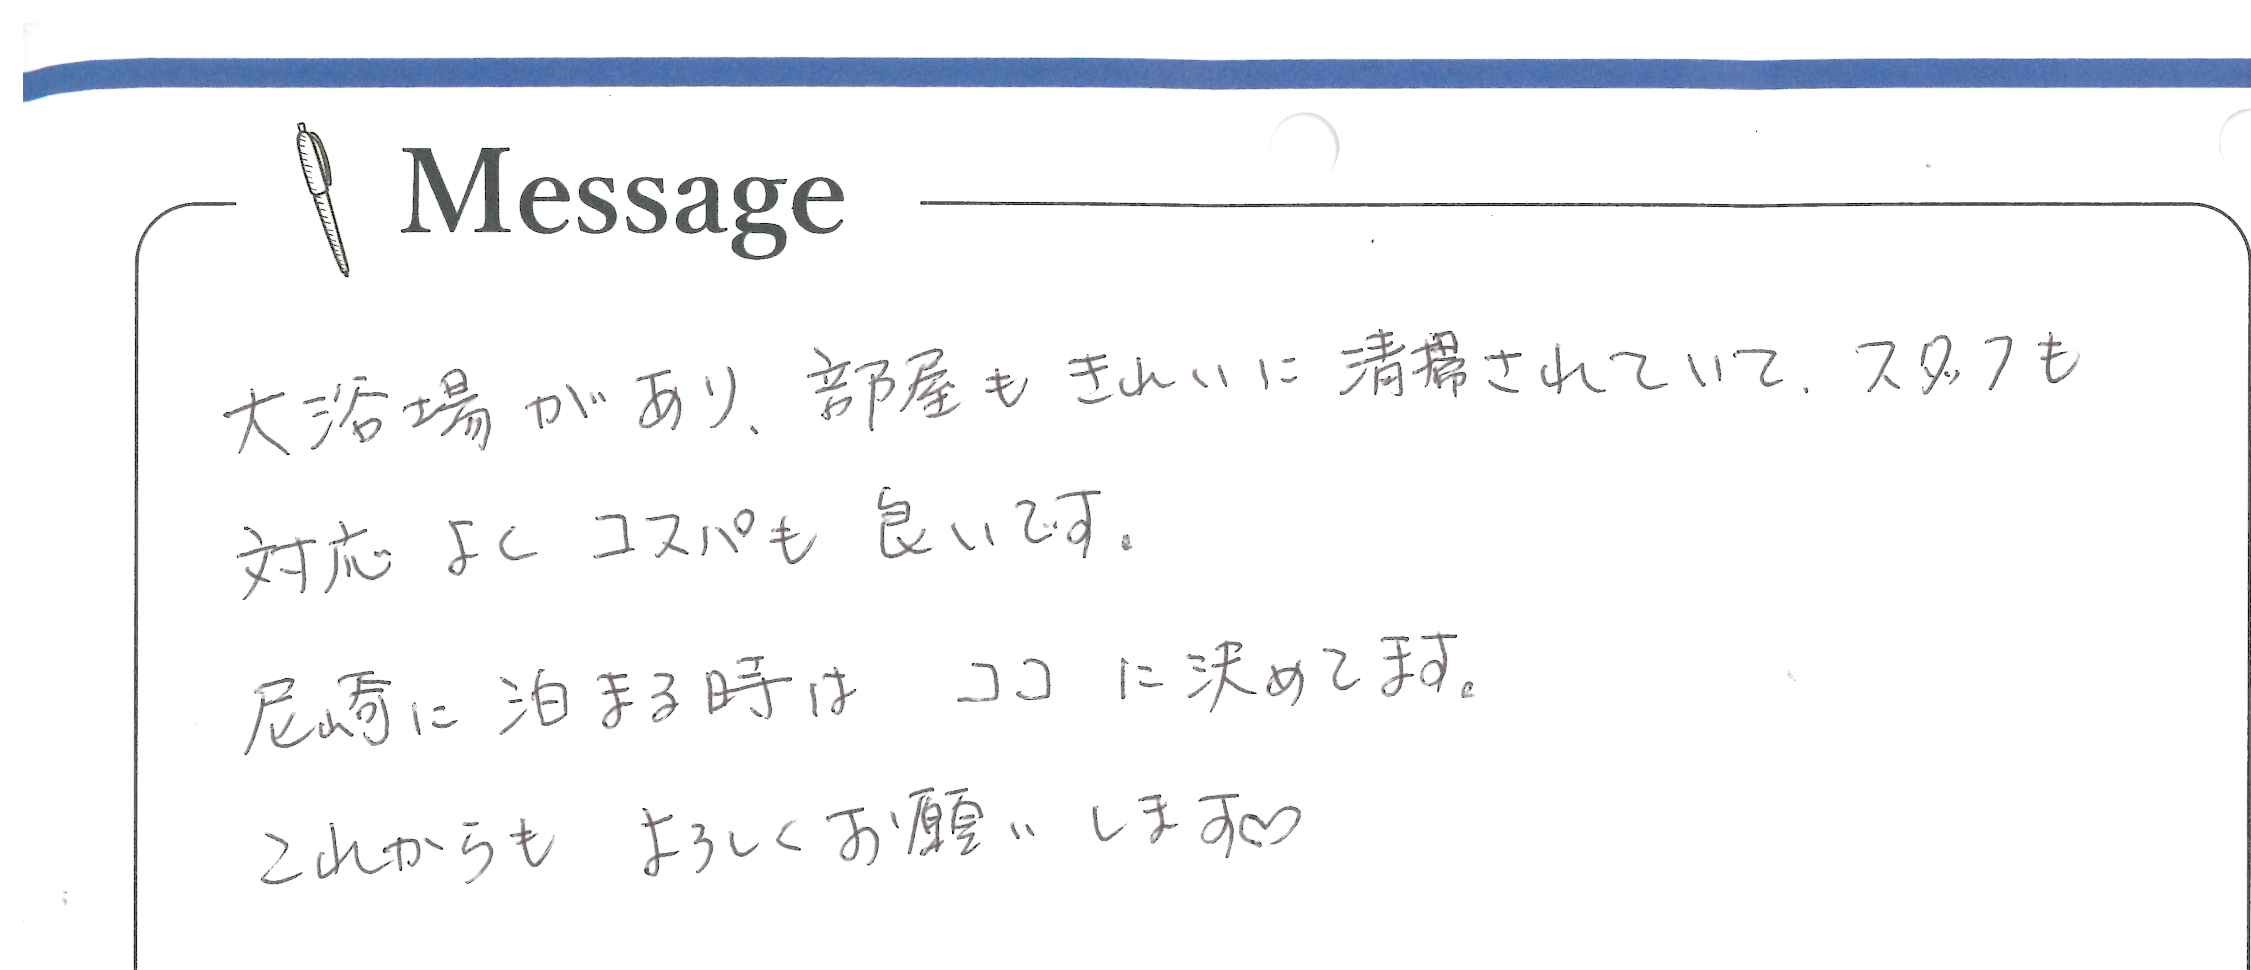 Message
大浴場があり、部屋もきれいに清掃されていて、スタッフも
対応よくコスパも良いです。
尼崎に泊まる時はココに決めてます。
これからもよろしくお願いします♡